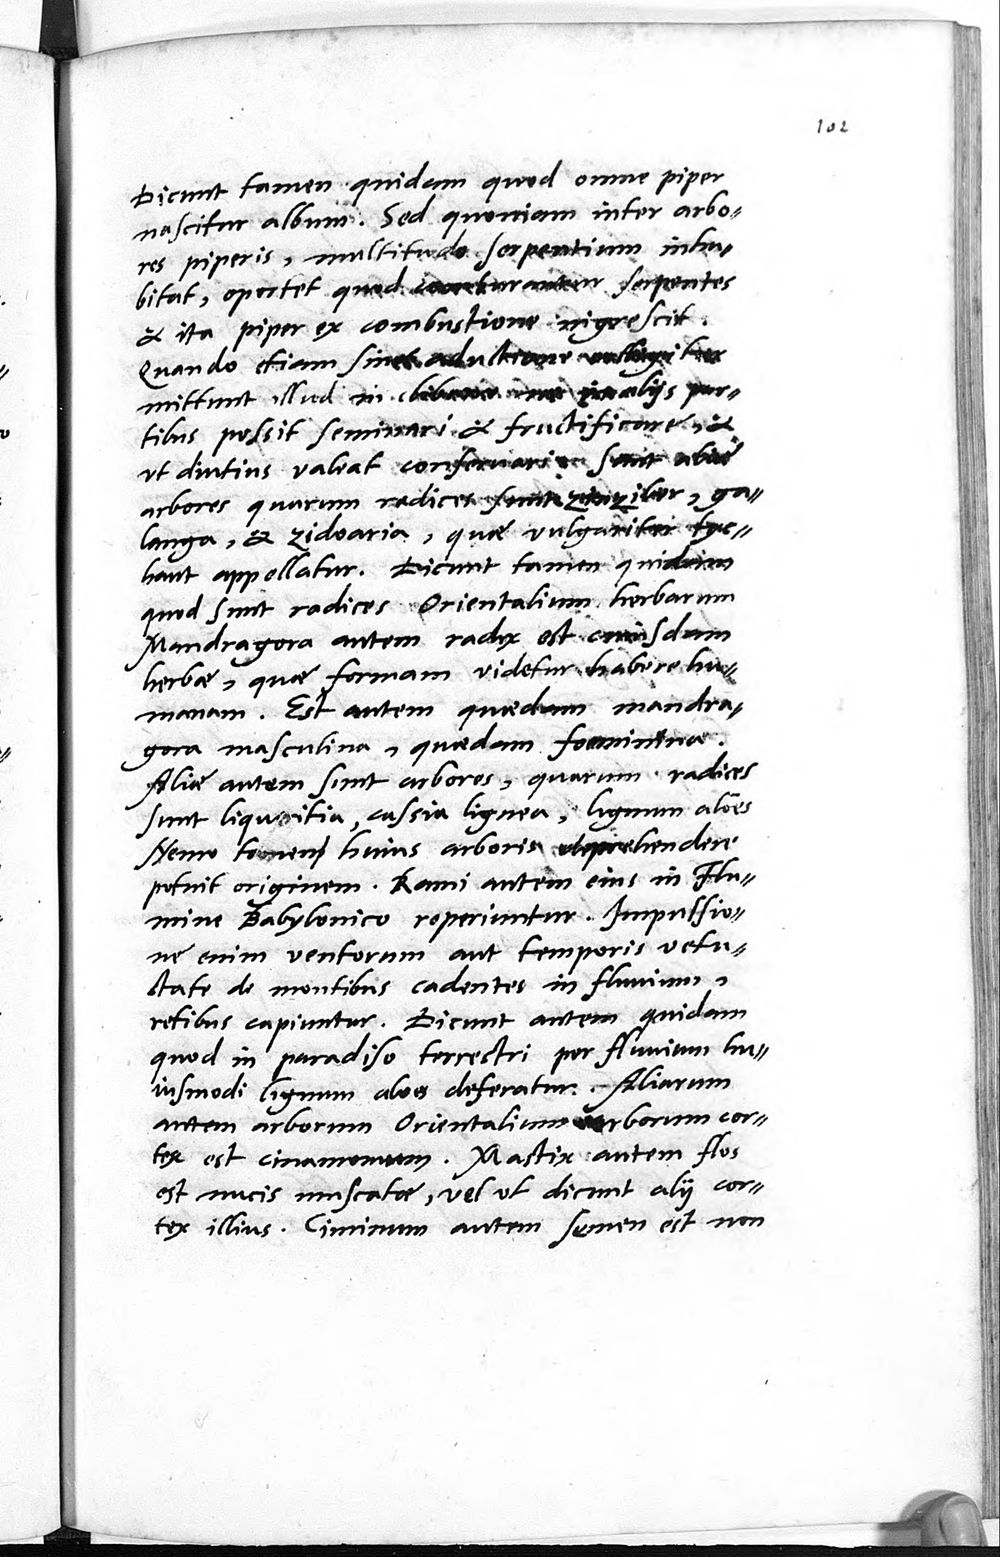 102
Dicunt tamen quidam quod omne piper
nascitur album. Sed quoniam inter arbo〃
res piperis, multitudo serpentium inha〃
bitat, oportet quod comburantur serpentes
& ita piper ex combustione nigrescit.
Quando etiam sine adustione colligitur
mittunt illud in clibano ne in alijs par〃
tibus possit seminari & fructificare, &
vt diutius valeat conseruari. Sunt aliæ
arbores quarum radices sunt zinziber, ga〃
langa, & zidoaria, quæ vulgariter
appellatur. Dicunt tamen quidam
quod sunt radices Orientalium herbarum
Mandragora autem radix est cuiusdam
herbæ, quæ formam videtur habere hu〃
manam. Est autem quædam mandra〃
gora masculina, quædam foeminina.
Aliæ autem sunt arbores, quarum radices
sunt liquiritia, cassia lignea, lignum aloes
Nemo tamen huius arboris deprehendere
potuit originem. Rami autem eius in Flu〃
mine Babylonico reperiuntur. Impulsio〃
ne enim ventorum aut temporis vetu〃
state de montibus cadentes in fluuium,
retibus capiuntur. Dicunt autem quidam
quod in paradiso terrestri per fluuium hu〃
iusmodi lignum aloes deferatur. Aliarum
autem arborum Orientalium arborum cor〃
tex est cinamomum. Mastix autem flos
est nucis muscatæ, vel vt dicunt alij cor〃
tex illius. Ciminum autem semen est non